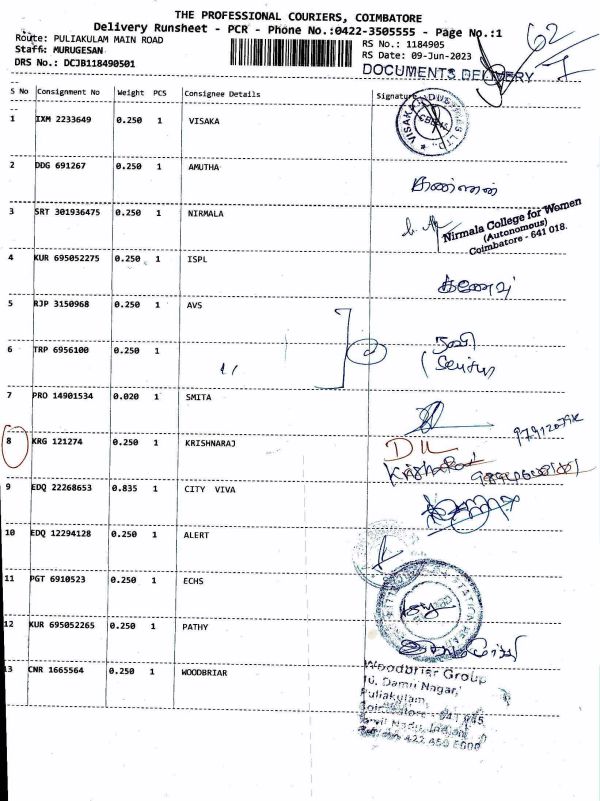 THE PROFESSIONAL COURIERS, COIMBATORE
Delivery Runsheet - PCR - Phone No.:0422-3505555 - Page No.:1
Route: PULIAKULAM MAIN ROAD
Staff: MURUGESAN
DRS No.: DCJB118490501
RS No.: 1184905
RS Date: 09-Jun-2023
DOCUMENTS DELIVERY
62
S No Consignment No Weight PCS Consignee Details Signature
1 IXM 2233649 0.250 1 VISAKA
2 DDG 691267 0.250 1 AMUTHA
3 SRT 301936475 0.250 1 NIRMALA
Nirmala College for Women
(Autonomous)
Coimbatore - 641 018.
4 KUR 695052275 0.250 1 ISPL
5 RJP 3150968 0.250 1 AVS
6 TRP 6956100 0.250 1
7 PRO 14901534 0.020 1 SMITA
8 KRG 121274 0.250 1 KRISHNARAJ
9 EDQ 22268653 0.835 1 CITY VIVA
10 EDQ 12294128 0.250 1 ALERT
11 PGT 6910523 0.250 1 ECHS
12 KUR 695052265 0.250 1 PATHY
13 CNR 1665564 0.250 1 WOODBRIAR
Woodbriar Group
Damu Nagar,
Puliakulam,